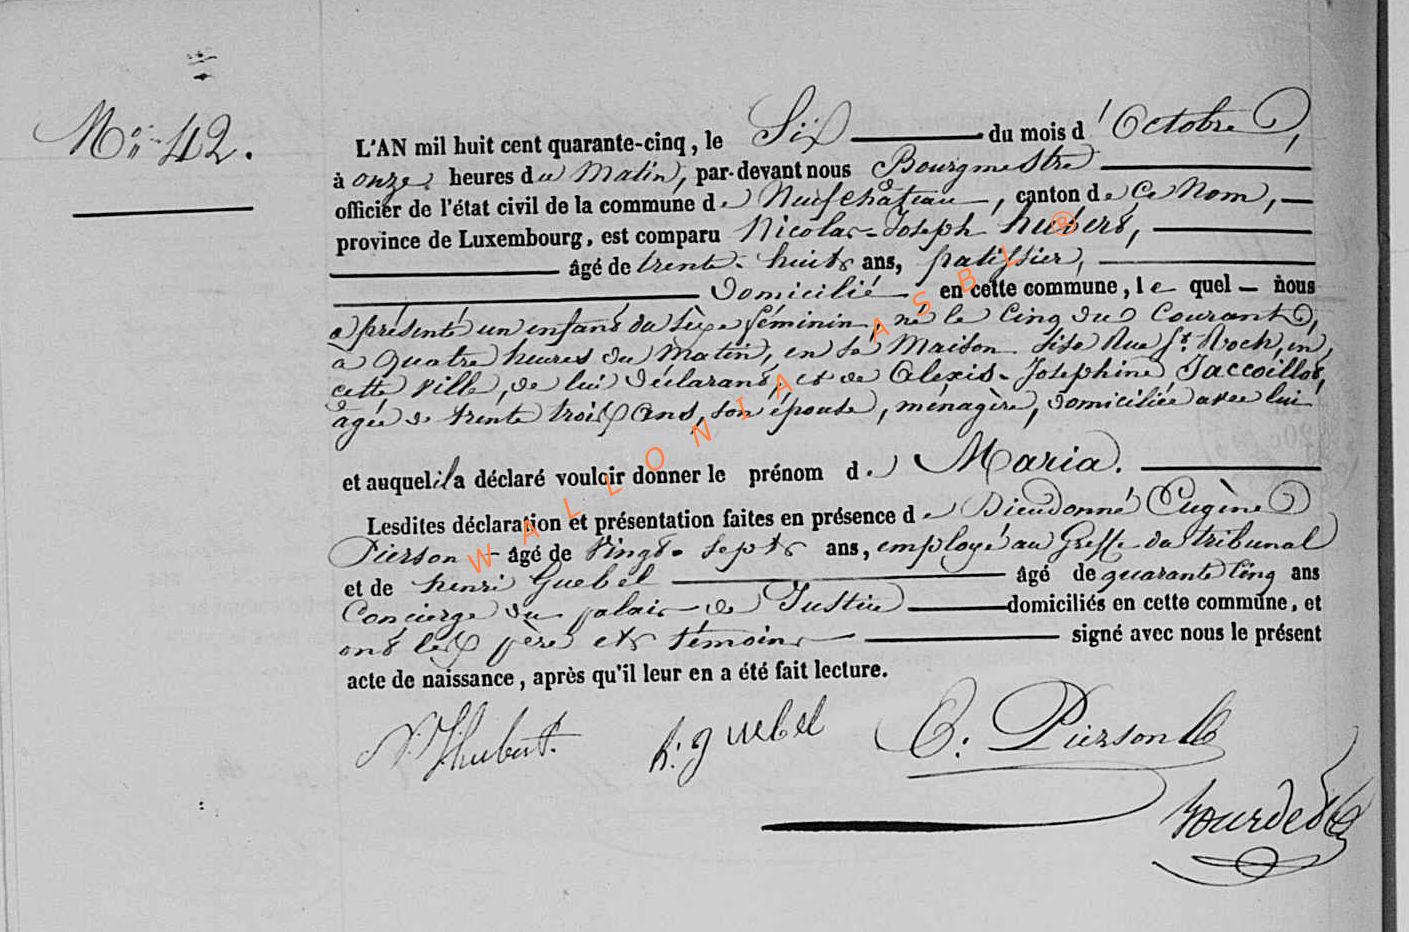 N° 42.
L'AN mil huit cent quarante-cinq, le Six du mois d'Octobre,
à onze heures du Matin, par-devant nous Bourgmestre
officier de l'état civil de la commune de Neufchâteau, canton de Ce Nom,
province de Luxembourg, est comparu Nicolas-Joseph hubert,
âgé de trente-huit ans, patissier,
Domicilié en cette commune, le quel nous
a présenté un enfant du Sexe féminin, né le Cinq du Courant,
à Quatre heures du Matin, en sa Maison Sise Rue St Roch, en
cette ville, de lui déclarant, et de Alexis-Joséphine Jaccoillot,
âgée de trente trois ans, son épouse, ménagère, domiciliée avec lui
et auquel il a déclaré vouloir donner le prénom de Maria.
Lesdites déclaration et présentation faites en présence de Dieudonné Eugène
Pierson âgé de Vingt-sept ans, employé au Greffe du tribunal
et de henri Guebel âgé de quarante Cinq ans
Concierge du palais de Justice domiciliés en cette commune, et
ont les père et témoins signé avec nous le présent
acte de naissance, après qu'il leur en a été fait lecture.
N. J. hubert. h: guebel E. Pierson
WALLONIA ASBL ®